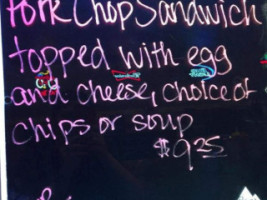 Pork Chop Sandwich
topped with egg
and cheese, choice of
chips or soup
$9.25